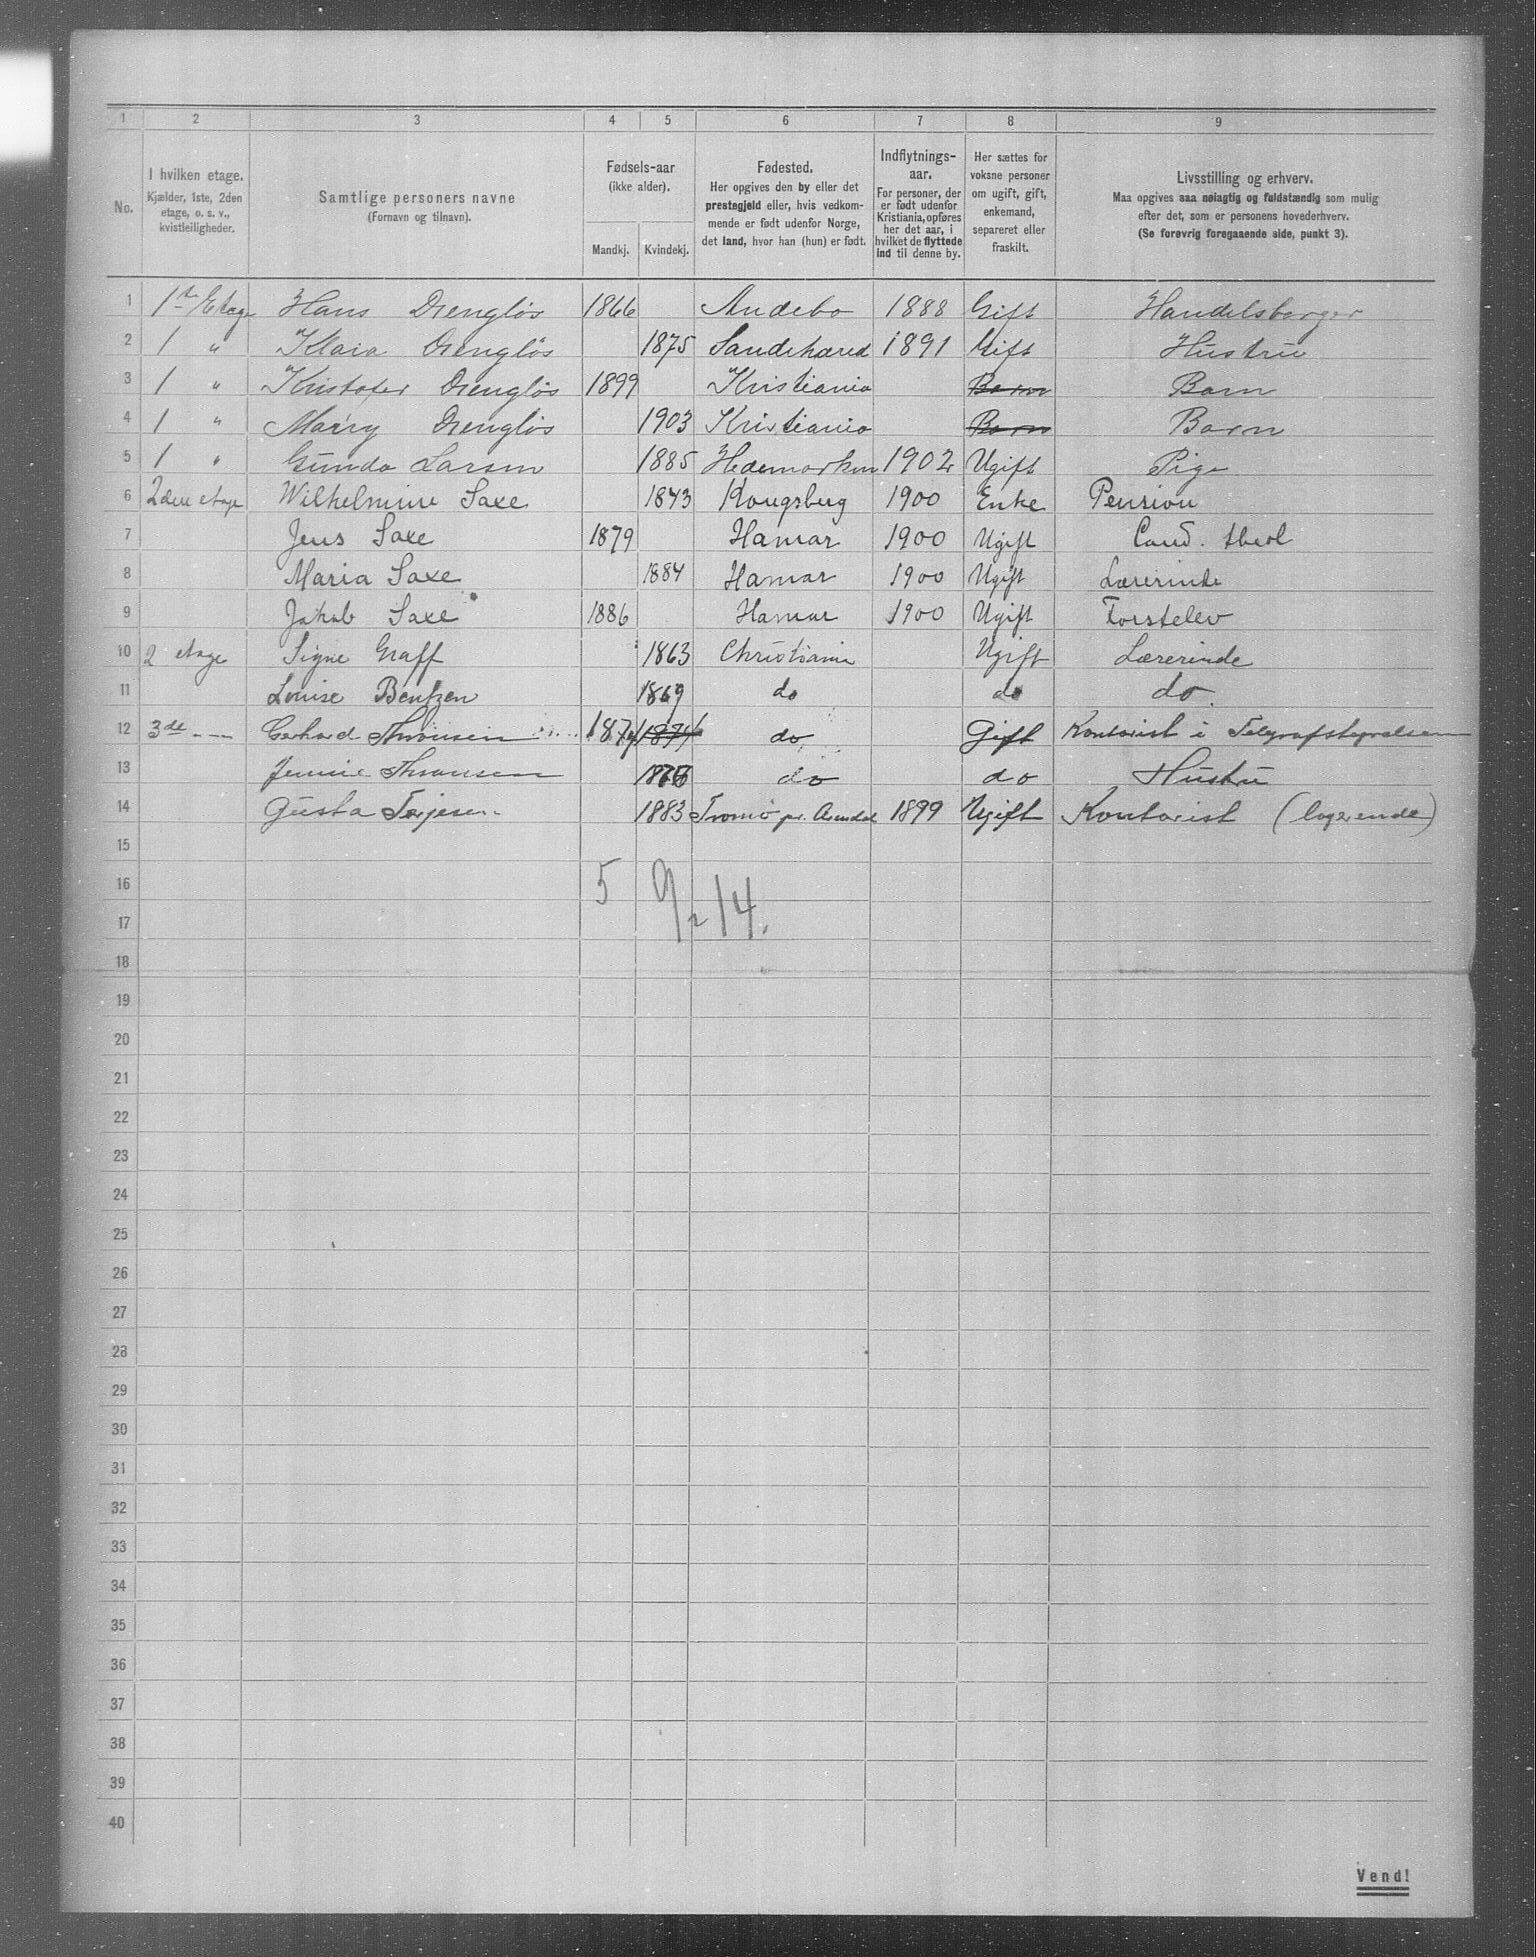 1 2 3 4 5 6 7 8 9
No.
I hvilken etage.
Kjælder, 1ste, 2den
etage, o. s. v.,
kvistleiligheder.
Samtlige personers navne
(Fornavn og tilnavn).
Fødsels-aar
(ikke alder).
Mandkj. Kvindekj.
Fødested.
Her opgives den by eller det
prestegjeld eller, hvis vedkom-
mende er født udenfor Norge,
det land, hvor han (hun) er født.
Indflytnings-
aar.
For personer, der
er født udenfor
Kristiania, opføres
her det aar, i
hvilket de flyttede
ind til denne by.
Her sættes for
voksne personer
om ugift, gift,
enkemand,
separeret eller
fraskilt.
Livsstilling og erhverv.
Maa opgives saa nøiagtig og fuldstændig som mulig
efter det, som er personens hovederhverv.
(Se forøvrig foregaaende side, punkt 3).
1 1ste Etage Hans Drengløs 1866 Andebo 1888 Gift Handelsborger
2 1 " Klara Drengløs 1875 Sandehæred 1891 Gift Hustru
3 1 " Kristofer Drengløs 1899 Kristiania Barn Barn
4 1 " Marry Drengløs 1903 Kristiania Barn Barn
5 1 " Gunda Larsen 1885 Hedemarken 1902 Ugift Pige
6 2den etage Wilhelmine Saxe 1843 Kongsberg 1900 Enke Pension
7 Jens Saxe 1879 Hamar 1900 Ugift Cand. theol
8 Maria Saxe 1884 Hamar 1900 Ugift Lærerinde
9 Jakob Saxe 1886 Hamar 1900 Ugift Forstelev
10 2 etage Signe Graff 1863 Christiania Ugift Lærerinde
11 Louise Bentzen 1869 do do do.
12 3de - - - Gerhard Thronsen 1874 1874 do Gift Kontorist i Telegrafstyrelsen
13 Jennie Thronsen 1876 do do Hustru
14 Gusta Terjesen 1883 Tromø pr. Arendal 1899 Ugift Kontorist (logerende)
15
16 5 9/2 14.
17
18
19
20
21
22
23
24
25
26
27
28
29
30
31
32
33
34
35
36
37
38
39
40
Vend!